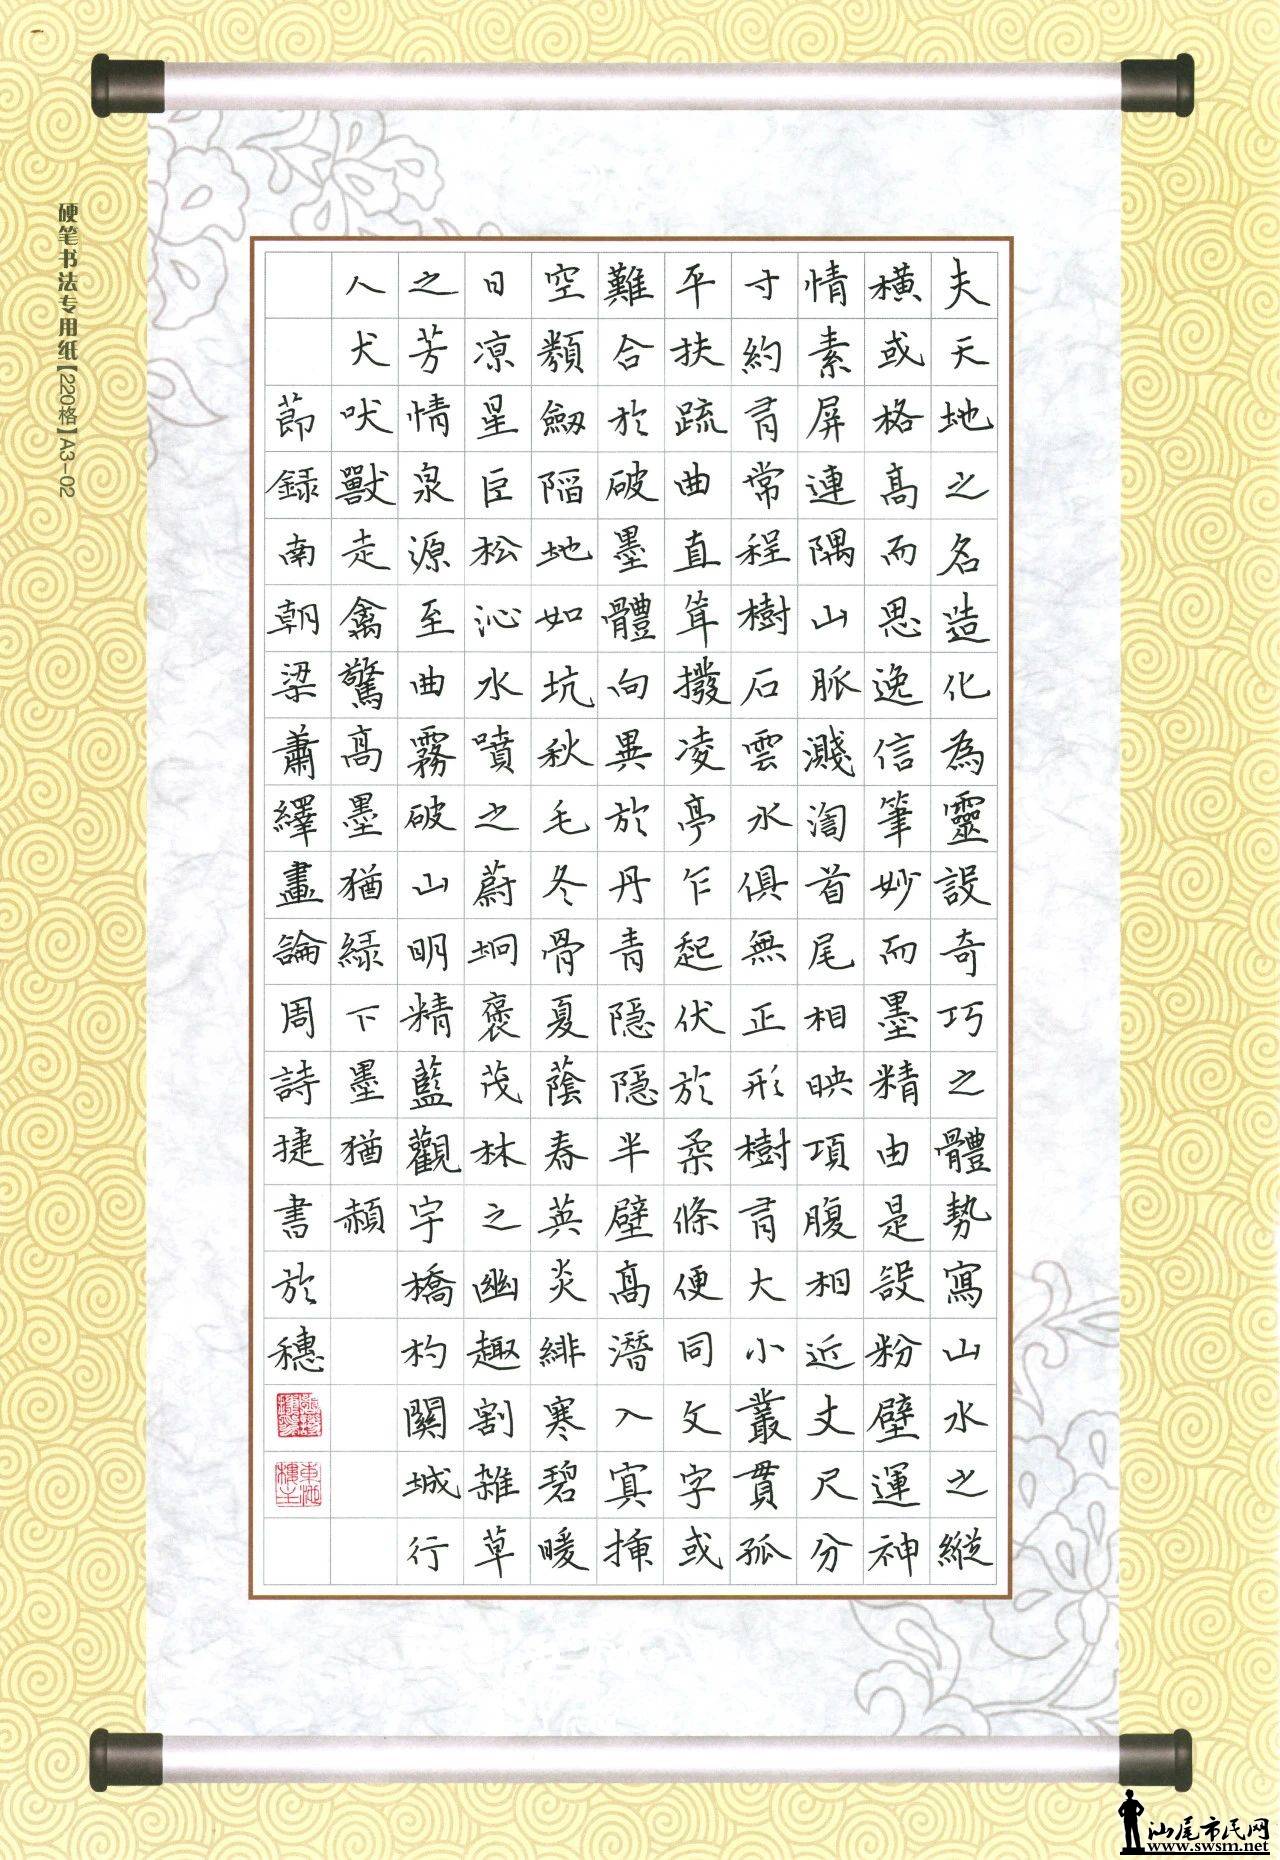 夫天地之名造化為靈設奇巧之體勢寫山水之縱
橫或格高而思逸信筆妙而墨精由是設粉壁運神
情素屏連隅山脈濺渹首尾相映項腹相近丈尺分
寸約有常程樹石雲水俱無正形樹有大小叢貫孤
平扶疏曲直耸撥凌亭乍起伏於柔條便同文字或
難合於破墨體向異於丹青隱隱半壁高潛入冥插
空類劒陷地如坑秋毛冬骨夏蔭春英炎緋寒碧暖
日凉星巨松沁水噴之蔚坰褒茂林之幽趣割雜草
之芳情泉源至曲霧破山明精藍觀宇橋杓關城行
人犬吠獸走禽驚高墨猶綠下墨猶赬
節録南朝梁蕭繹畫論周詩捷書於穗
硬笔书法专用纸【220格】A3-02
汕尾市民网
www.swsm.net